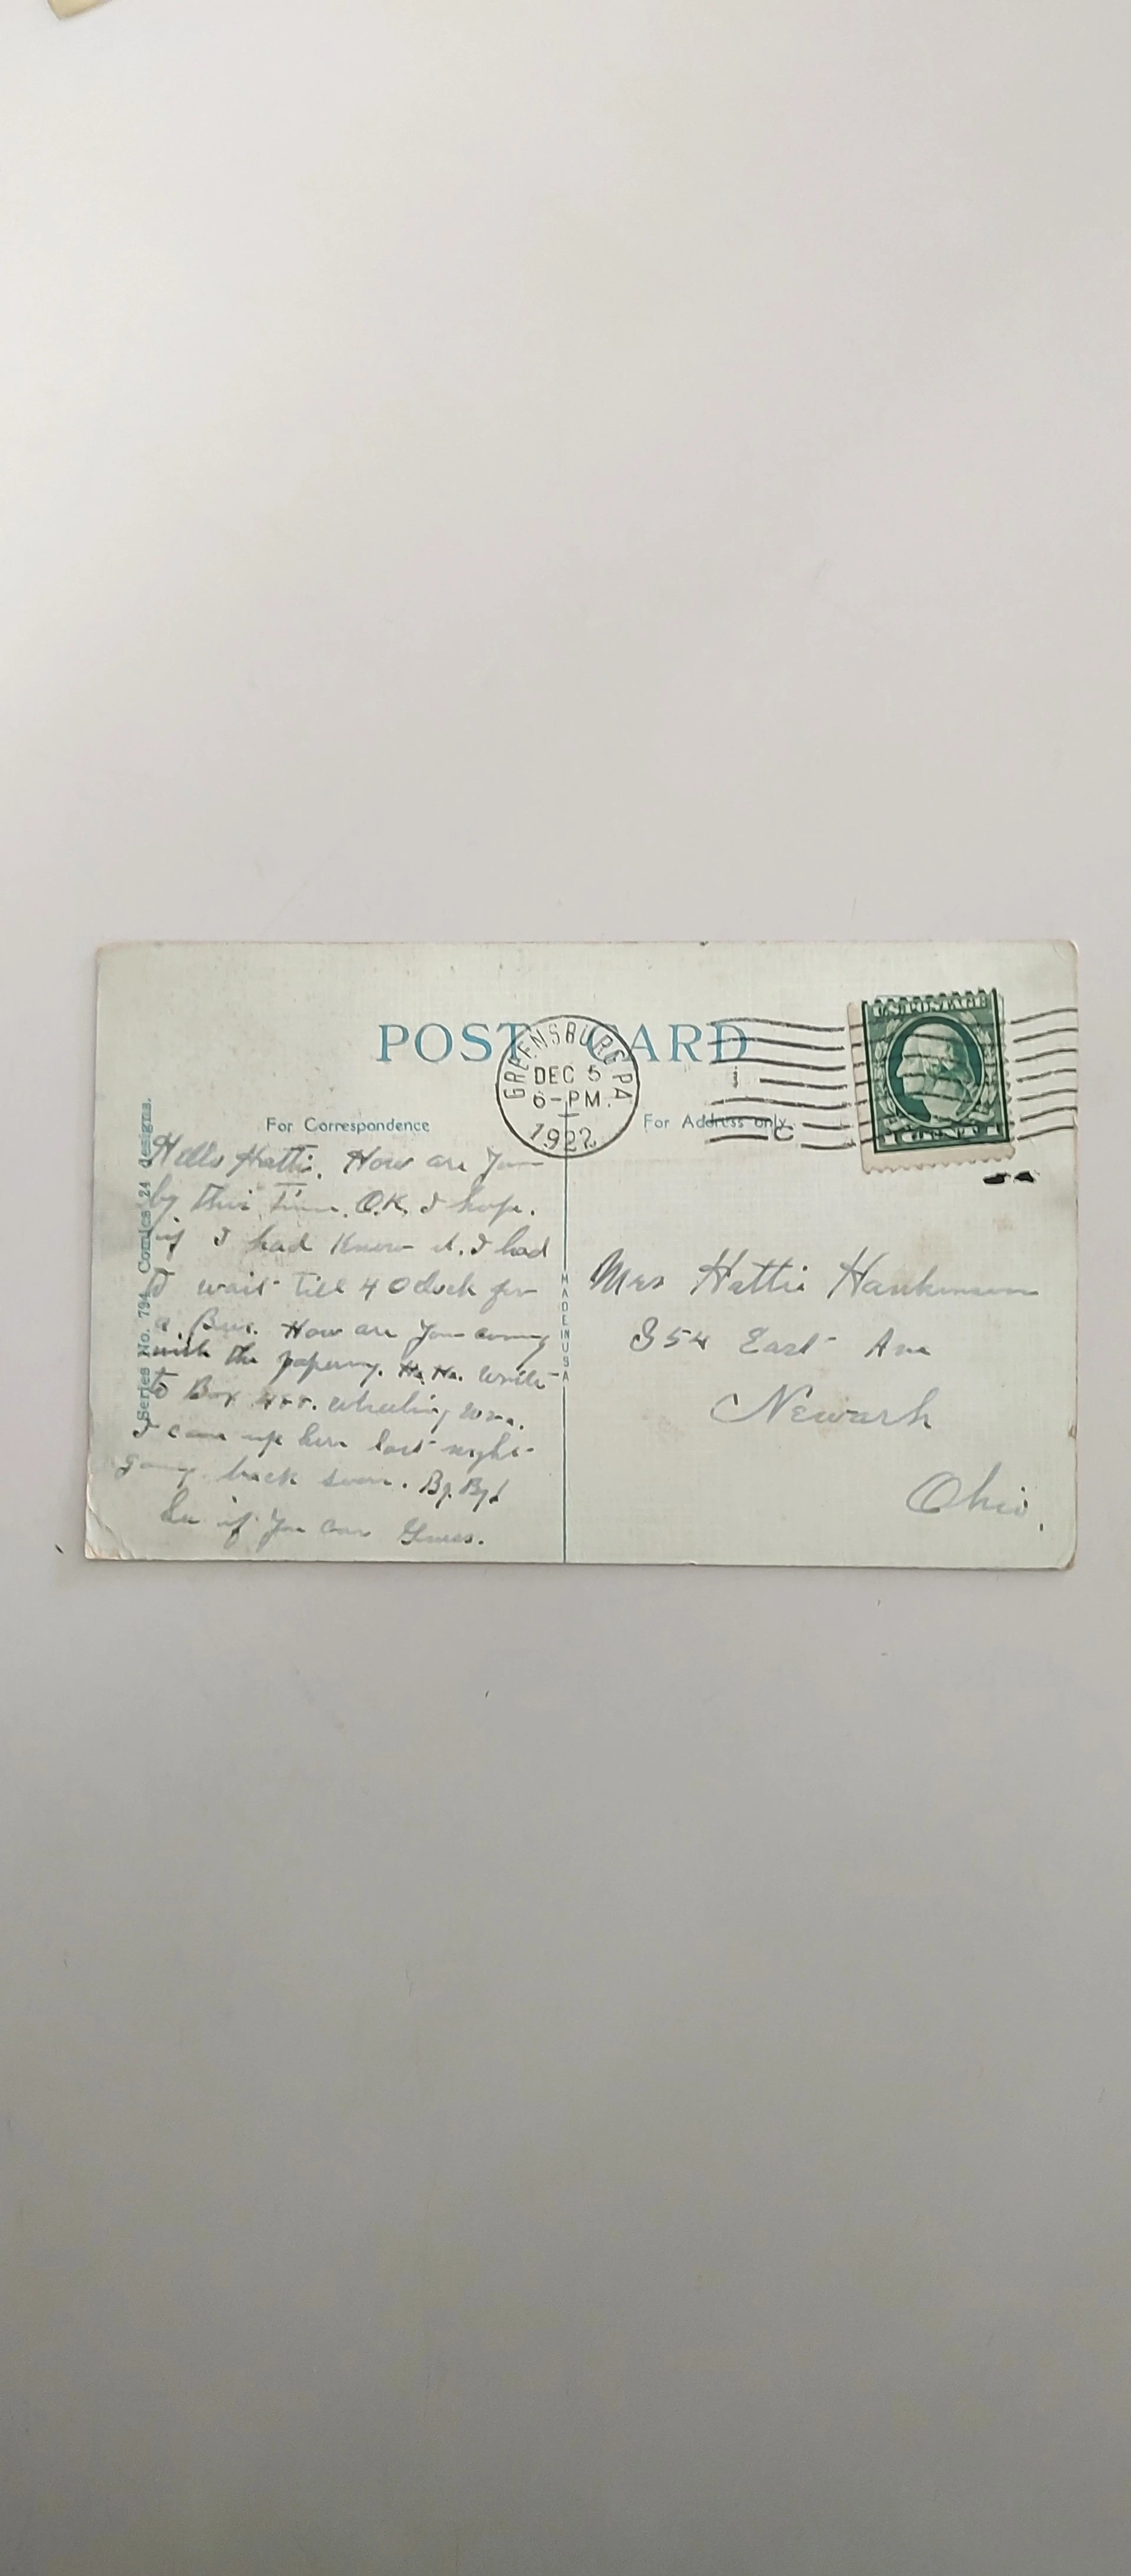 POST CARD
GREENSBURG PA
DEC 5
6-PM.
1922
U.S. POSTAGE
For Correspondence
For Address only.
Series No. 794 Comics 24 designs.
MADE IN USA
Hello Hattie. How are you
by this time. O.K. I hope.
if I had Know it. I had
to wait till 4 Oclock for
a Bus. How are you coming
with the papering. Ha Ha. Write
to Box Wheeling W.Va.
I came up here last night
going back soon. By. By!
See if you can Guess.
Mrs Hattie
354 East Ave
Newark
Ohio.